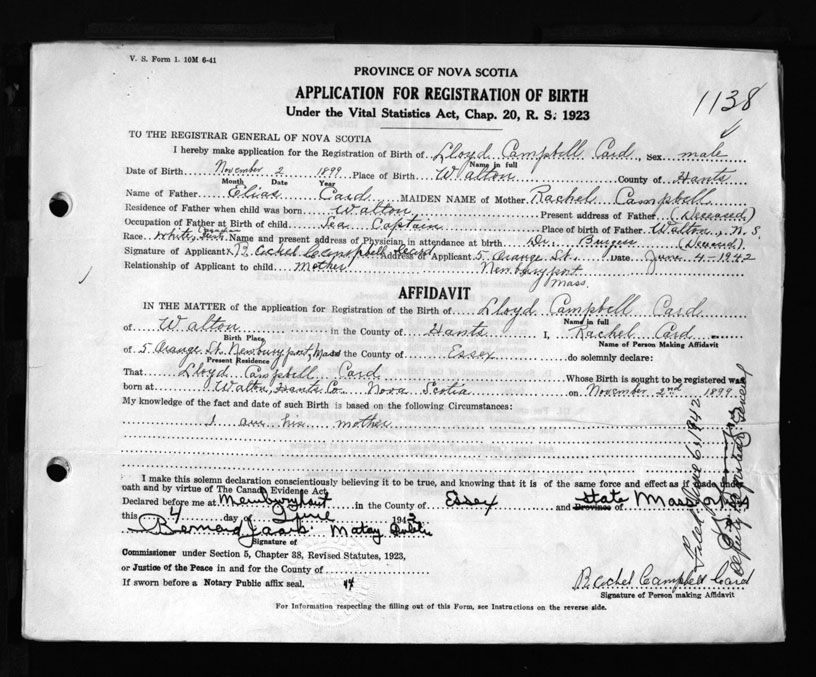 V. S. Form 1. 10M 6-41
PROVINCE OF NOVA SCOTIA
APPLICATION FOR REGISTRATION OF BIRTH
Under the Vital Statistics Act, Chap. 20, R. S. 1923
1138
TO THE REGISTRAR GENERAL OF NOVA SCOTIA
I hereby make application for the Registration of Birth of Lloyd Campbell Card, Sex male
Name in full
Date of Birth November 2 1899 Place of Birth Walton County of Hants
Month Date Year
Name of Father Elias Card MAIDEN NAME of Mother Rachel Campbell
Residence of Father when child was born Walton Present address of Father (Deceased)
Occupation of Father at Birth of child Sea Captain Place of birth of Father Walton, N. S.
Race White, Name and present address of Physician in attendance at birth Dr. Burgess (Deceased).
Signature of Applicant Rachel Campbell Card Address of Applicant 5 Orange St. Date June 4-1942
Relationship of Applicant to child Mother Newburyport Mass.
AFFIDAVIT
IN THE MATTER of the application for Registration of the Birth of Lloyd Campbell Card
Name in full
of Walton in the County of Hants I, Rachel Card
Birth Place Name of Person Making Affidavit
of 5 Orange St. Newburyport, Mass the County of Essex do solemnly declare:
Present Residence
That Lloyd Campbell Card Whose Birth is sought to be registered was
born at Walton, Hants Co. Nova Scotia on November 2nd 1899
My knowledge of the fact and date of such Birth is based on the following Circumstances:
I am his mother
I make this solemn declaration conscientiously believing it to be true, and knowing that it is of the same force and effect as if made under
oath and by virtue of The Canada Evidence Act.
Declared before me at Newburyport in the County of Essex and Province of State Mass
this 4 day of June 1942
Signature of
Commissioner under Section 5, Chapter 38, Revised Statutes, 1923,
or Justice of the Peace in and for the County of
If sworn before a Notary Public affix seal.
Rachel Campbell Card
Signature of Person making Affidavit
For Information respecting the filling out of this Form, see Instructions on the reverse side.
Filed June 6, 1942
Deputy Registrar General